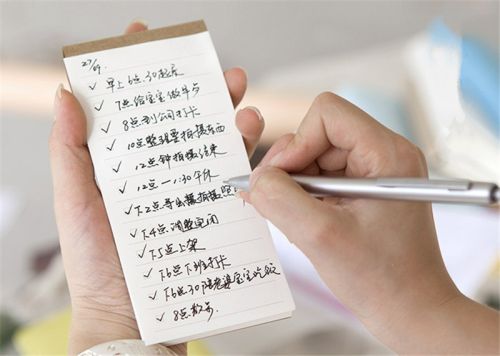 27/9.
✓ 早上6点30起床
✓ 7点给宝宝做早点
✓ 8点到公司打卡
✓ 10点整理要拍摄东西
✓ 12点钟拍摄结束
✓ 12点一1:30午休
✓ 下2点导出拍摄照
✓ 下4点调整完闭
✓ 下5点上架
✓ 下6点下班打卡
✓ 下6点30陪老婆宝宝吃饭
✓ 8点散步.